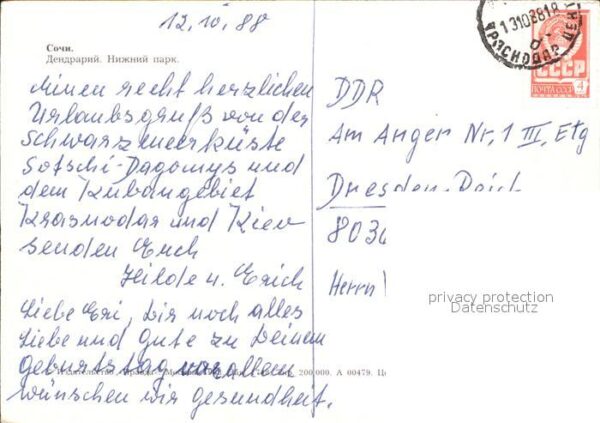 12.10.88
Сочи.
Дендрарий. Нижний парк.
Einen recht herzlichen
Urlaubsgruß von der
Schwarzmeerküste
Sotschi-Dagomys und
dem Kubangebiet
Krasnodar und Kiev
senden Euch
Hilde u. Erich
Liebe Eri, Dir noch alles
Liebe und gute zu Deinem
geburtstag vor allem
wünschen wir gesundheit.
200.000. А 00479.
131088
КРАСНОДАР
СССР
ПОЧТА СССР
4
DDR
Am Anger Nr. 1 III. Etg
Dresden
803
Herrn
privacy protection
Datenschutz